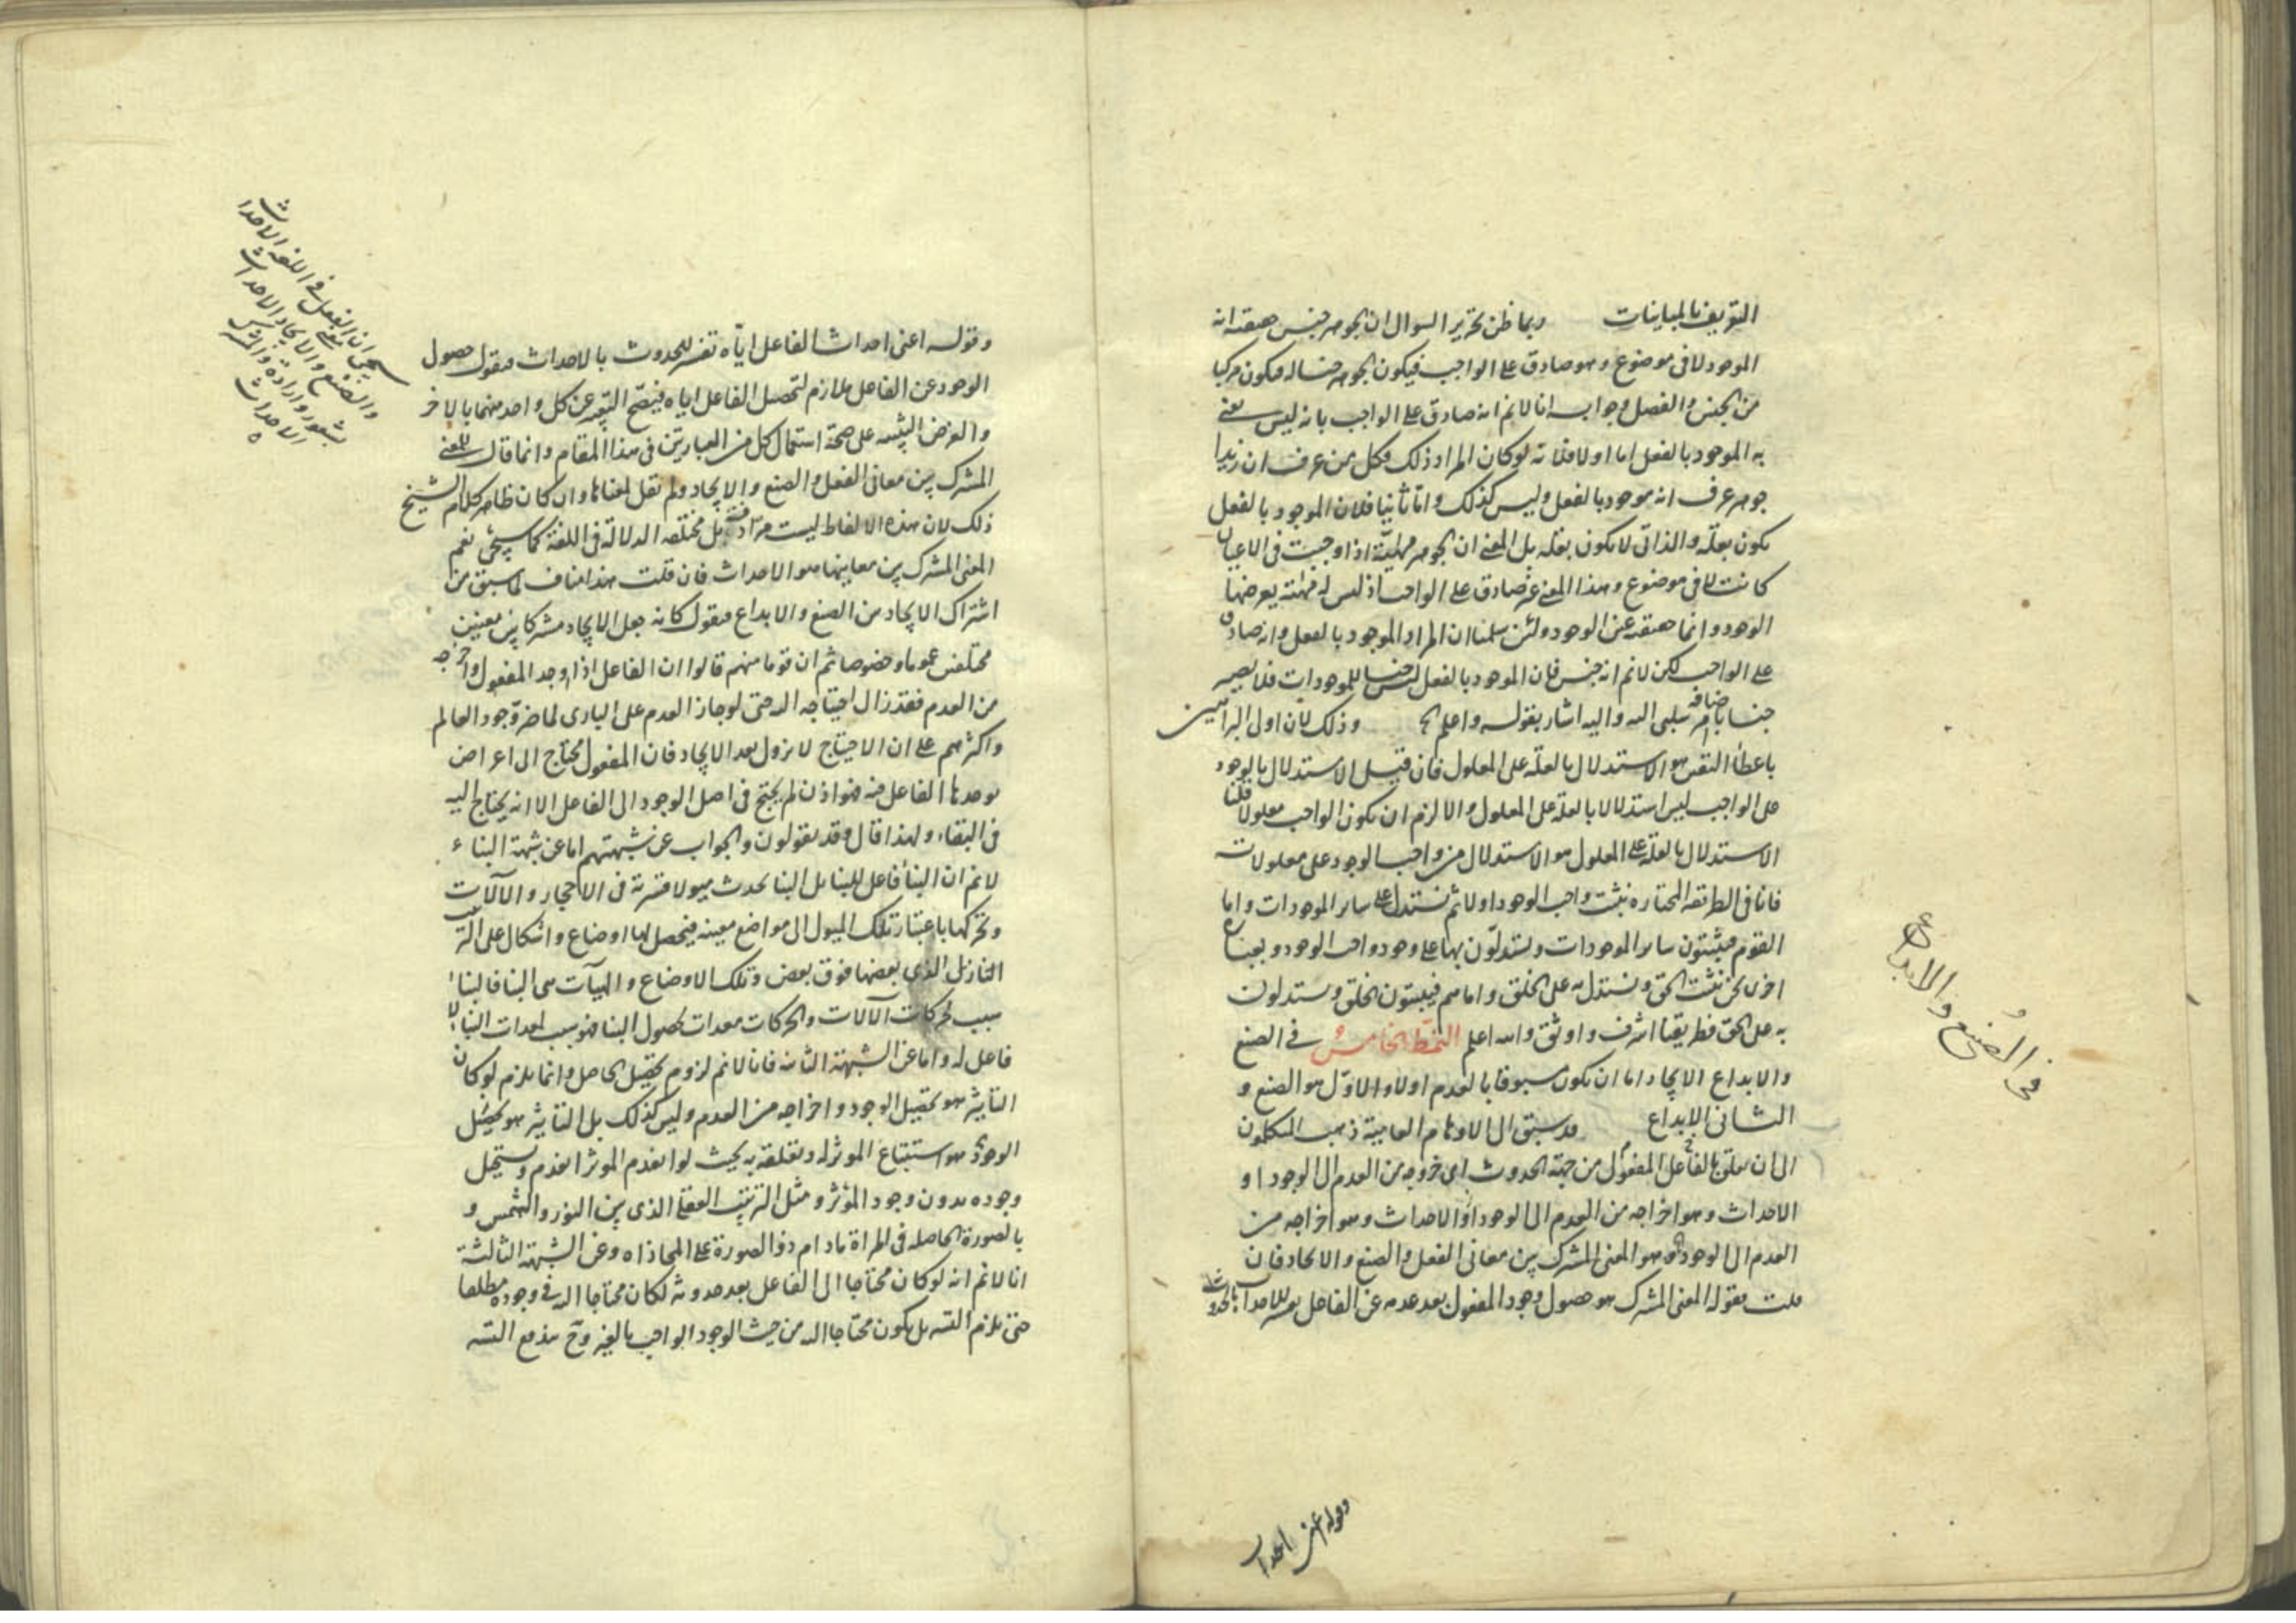 التعريف بالمباينات وربما ظن تحرير السوال ان الجوهر جنس حقيقته انه
الموجود لا فى موضوع وهو صادق على الواجب فيكون الجوهر جنسا له فيكون مركبا
من الجنس والفصل وجوابه انا لا نم انه صادق على الواجب بانه ليس يعنى
به الموجود بالفعل اما اولا فلانه لو كان المراد ذلك فكل من عرف ان زيدا
جوهر عرف انه موجود بالفعل وليس كذلك واما ثانيا فلان الموجود بالفعل
يكون بعلة والذاتى لا يكون بعلة بل المعنى ان الجوهر مهية اذا وجبت فى الاعيان
كانت لا فى موضوع وهذا المعنى غير صادق على الواجب اذ ليس له مهية يعرضها
الوجود وانما حقيقته عين الوجود ولئن سلمنا ان المراد الموجود بالفعل وانه صادق
على الواجب لكن لا نم انه جنس فان الموجود بالفعل ليس جنسا للموجودات فلا يصير
جنسا باضافة امر سلبى اليه واليه اشار بقوله واعلم الخ وذلك لان اول البراهين
باعطاء اليقين هو الاستدلال بالعلة على المعلول فان قيل الاستدلال بالوجود
على الواجب ليس استدلالا بالعلة على المعلول والا لزم ان يكون الواجب معلولا قلنا
الاستدلال بالعلة على المعلول هو الاستدلال من واجب الوجود على معلولاته
فانا فى الطريقة المختارة نثبت واجب الوجود اولا ثم نستدل على ساير الموجودات واما
القوم فيثبتون ساير الموجودات ويستدلون بها على وجود واجب الوجود وبعبارة
اخرى نحن نثبت الحق ونستدل به على الخلق واما هم فيثبتون الخلق ويستدلون
به على الحق فطريقنا اشرف واوثق والله اعلم النمط الخامس فى الصنع
والابداع الايجاد اما ان يكون مسبوقا بالعدم اولا والاول هو الصنع و
الثانى الابداع قد سبق الى الاوهام العامية ذهب المتكلمون
الى ان تعلق المفعول بالفاعل من جهة الحدوث اى خروجه من العدم الى الوجود او
الاحداث وهو اخراجه من العدم الى الوجود او الاحداث وهو اخراجه من
العدم الى الوجود وهو المعنى المشترك بين معانى الفعل والصنع والايجاد فان
قلت بقوله المعنى المشترك هو حصول وجود المفعول بعد عدمه عن الفاعل تفسير للاحداث بالحدوث
فى الصنع والابداع
وقوله اعنى احداث
وقوله اعنى احداث الفاعل اياه تفسير للحدوث بالاحداث فيقول حصول
الوجود عن الفاعل ملازم لتحصيل الفاعل اياه فيصح التعبير عن كل واحد منهما بالاخر
والغرض التنبيه على صحة استعمال كل من العبارتين فى هذا المقام وانما قال للمعنى
المشترك بين معانى الفعل والصنع والايجاد ولم نقل لمعناها وان كان ظاهر كلام الشيخ
ذلك لان هذه الالفاظ ليست مترادفة بل مختلفة الدلالة فى اللغة كما سيجئ نعم
المعنى المشترك بين معانيها هو الاحداث فان قلت هذا مناف لما سبق من
اشتراك الايجاد من الصنع والابداع فيقول كانه جعل الايجاد مشتركا بين معنيين
مختلفين عموما وخصوصا ثم ان قوما منهم قالوا ان الفاعل اذا اوجد المفعول واخرجه
من العدم فقد زال احتياجه اليه حتى لو جاز العدم على البارى لما ضر وجود العالم
واكثرهم على ان الاحتياج لا يزول بعد الايجاد فان المفعول محتاج الى اعراض
يوجدها الفاعل فيه فهو اذن لم يحتج فى اصل الوجود الى الفاعل الا انه يحتاج اليه
فى البقاء ولهذا قال وقد يقولون والجواب عن شبهتهم اما عن شبهة البناء
لا نم ان البناء فاعل للبناء بل البناء يحدث ميولا قسرية فى الاحجار والآلات
وتحركها باعتبار تلك الميول الى مواضع معينة فيحصل لها اوضاع واشكال على الترتيب
النازل الذى بعضها فوق بعض وتلك الاوضاع والهيآت هى البناء فالبناء
سبب لحركات الآلات والحركات معدات لحصول البناء فهو سبب لمعدات البناء لا
فاعل له واما عن الشبهة الثانية فانا لا نم لزوم تحصيل الحاصل وانما يلزم لو كان
التأثير هو تحصيل الوجود واخراجه من العدم وليس كذلك بل التاثير هو تحصيل
الوجود هو استتباع الموثر له وتعلقه به بحيث لو انعدم الموثر انعدم ويستحيل
وجوده بدون وجود المؤثر ومثل الترتيب العقلى الذى بين النور والشمس و
بالصورة الحاصلة فى المراة مادام ذو الصورة على المحاذاه وعن الشبهة الثالثة
انا لا نم انه لو كان محتاجا الى الفاعل بعد حدوثه لكان محتاجا اليه فى وجوده مطلقا
حتى يلزم التسه بل يكون محتاجا اليه من حيث الوجود الواجب بالغير وح يندفع التسه
سيجئ ان الفعل فى اللغة الاحداث
والصنع والايجاد الاحداث
بشعور وارادة
الاحداث